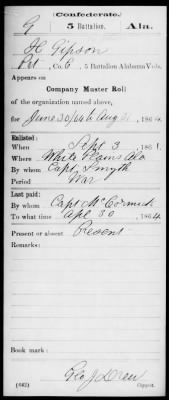 (Confederate.)
G 5 Battalion. Ala.
H Gipson
Pvt, Co. C, 5 Battalion Alabama Vols.
Appears on
Company Muster Roll
of the organization named above,
for June 30 to Aug 31, 1864
Enlisted:
When Sept 3, 1861.
Where White Plains Ala
By whom Capt Smyth
Period War
Last paid:
By whom Capt McCormick
To what time Apl 30, 1864
Present or absent Present
Remarks:
Book mark:
Geo J Drew
(642) Copyist.